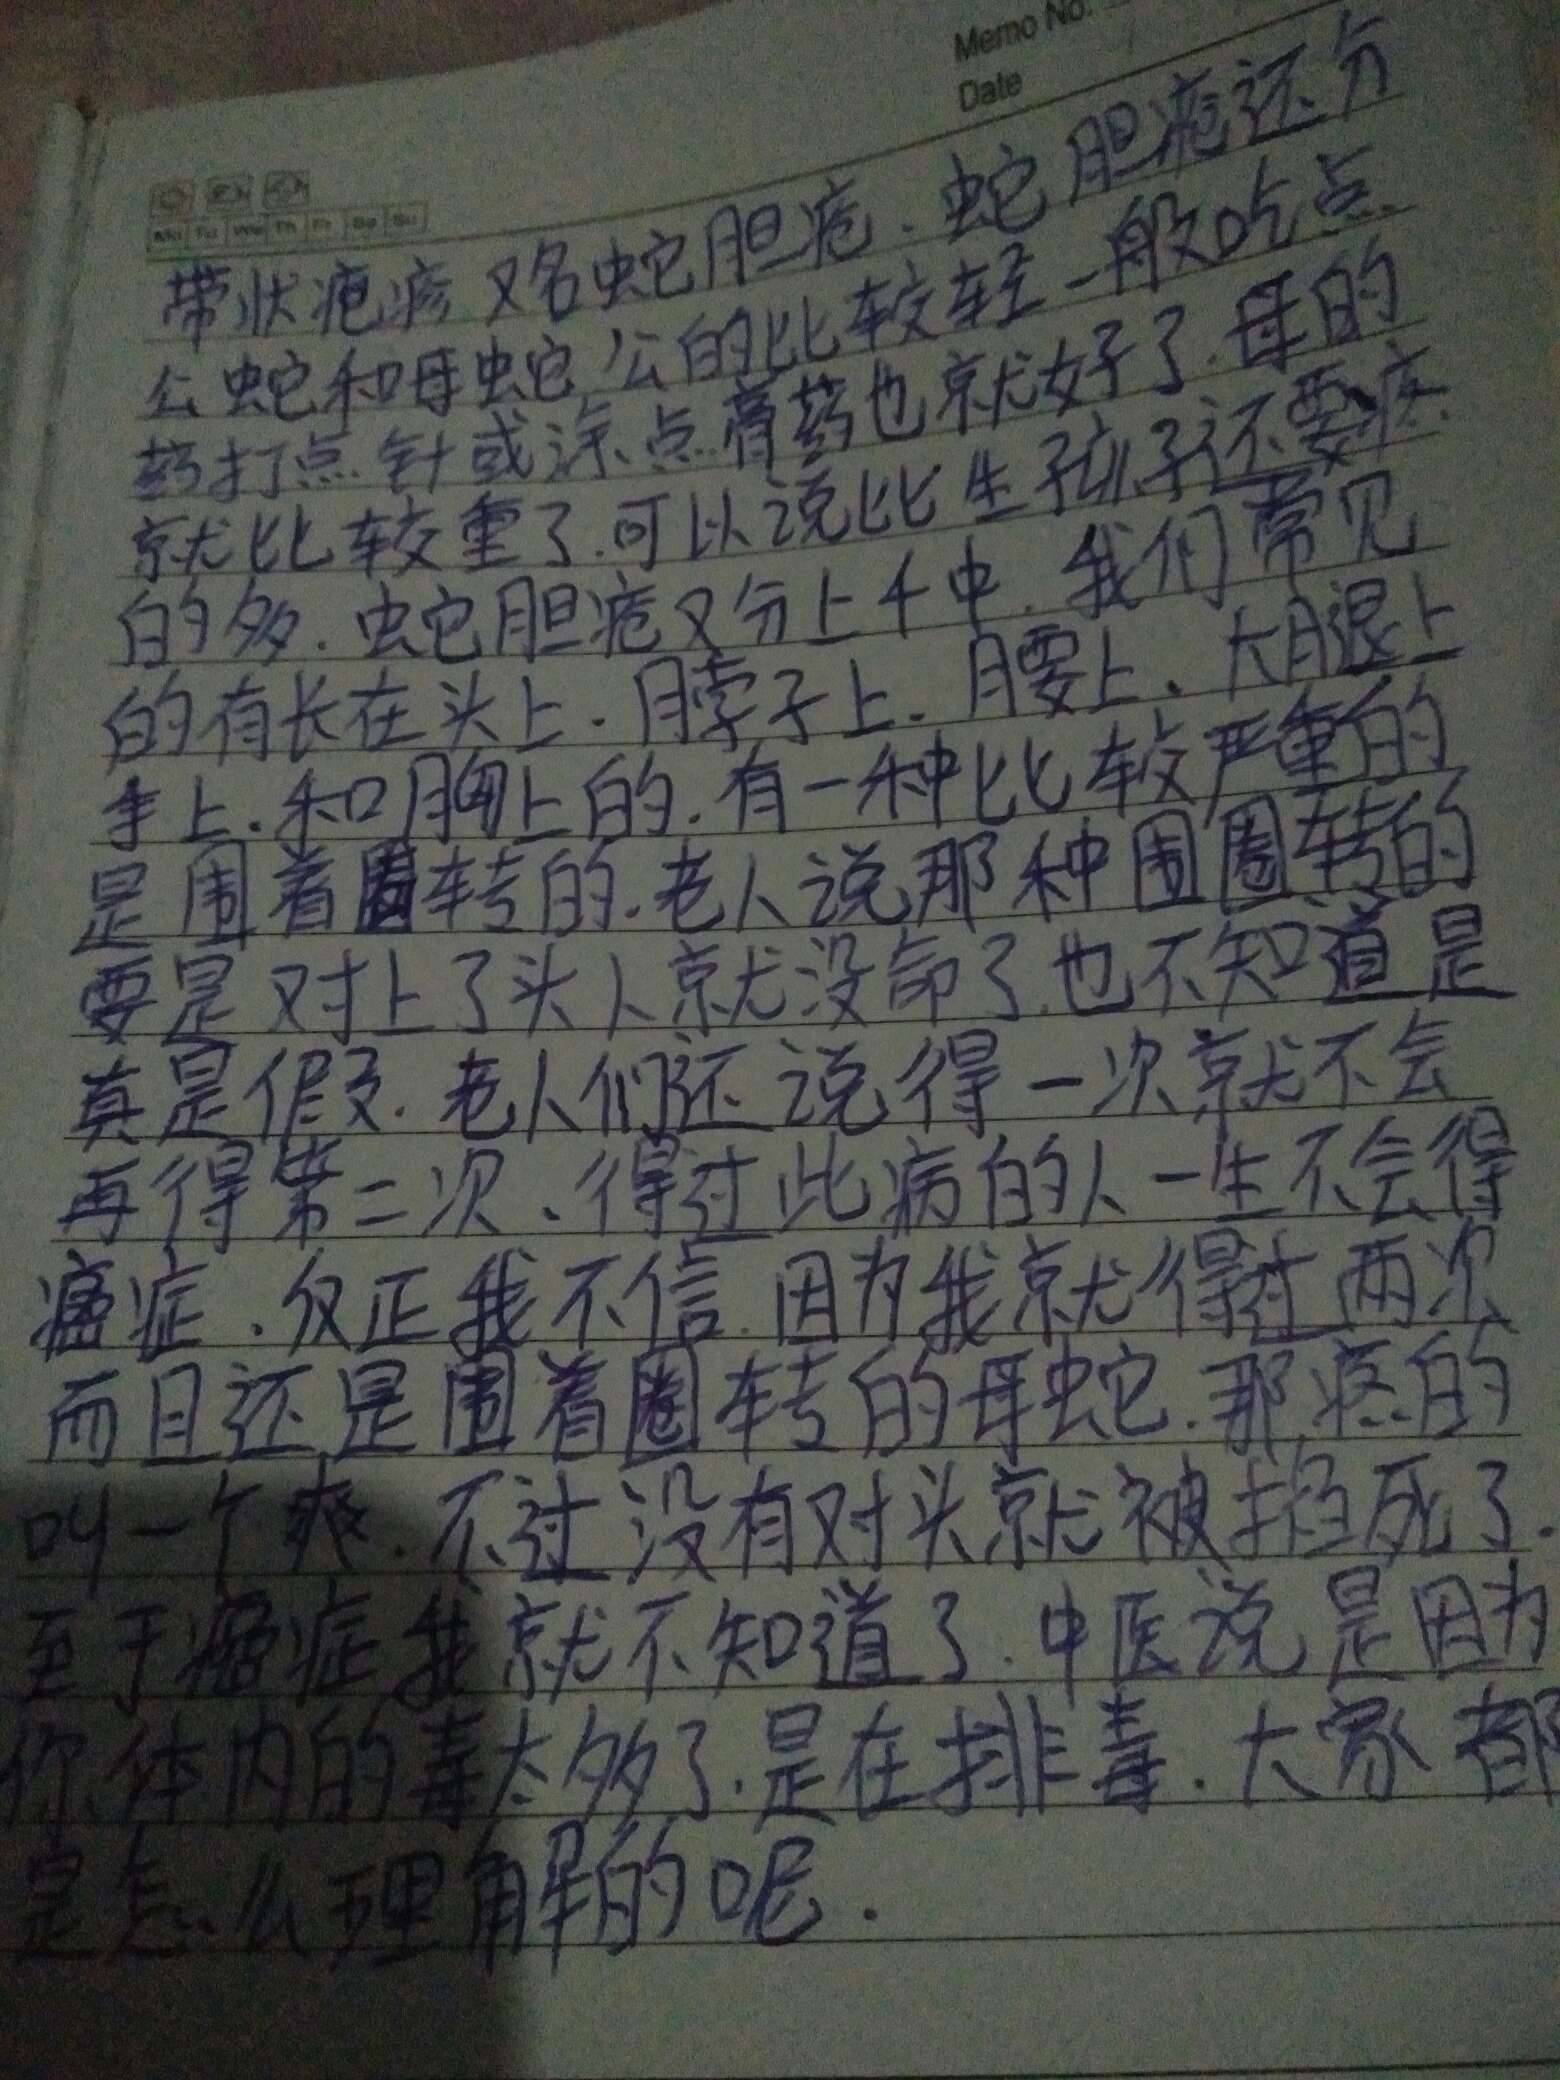 Memo No.
Date
Mo Tu We Th Fr Sa Su
带状疱疹又名蛇胆疮.蛇胆疮还分
公蛇和母蛇公的比较轻一般吃点
药打点针或涂点膏药也就好了.母的
就比较重了.可以说比生孩子还要疼
的多.蛇胆疮又分上下中.我们常见
的有长在头上.脖子上.腰上.大腿上
手上.和胸上的.有一种比较严重的
是围着圈转的.老人说那种围圈转的
要是对上了头人就没命了.也不知道是
真是假.老人们还说得一次就不会
再得第二次、得过此病的人一生不会得
癌症.反正我不信.因为我就得过两次
而且还是围着圈转的母蛇.那疼的
叫一个爽.不过没有对头就被掐死了.
至于癌症我就不知道了.中医说是因为
你体内的毒太多了.是在排毒.大家都
是怎么理解的呢.